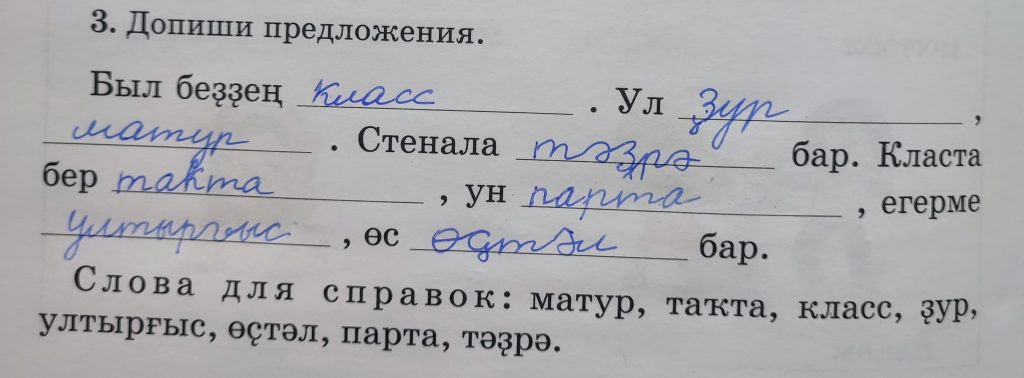 3. Допиши предложения.
Был беҙҙең класс . Ул ҙур ,
матур . Стенала тәҙрә бар. Класта
бер таҡта , ун парта , егерме
ултырғыс , өс өҫтәл бар.
Слова для справок: матур, таҡта, класс, ҙур,
ултырғыс, өҫтәл, парта, тәҙрә.